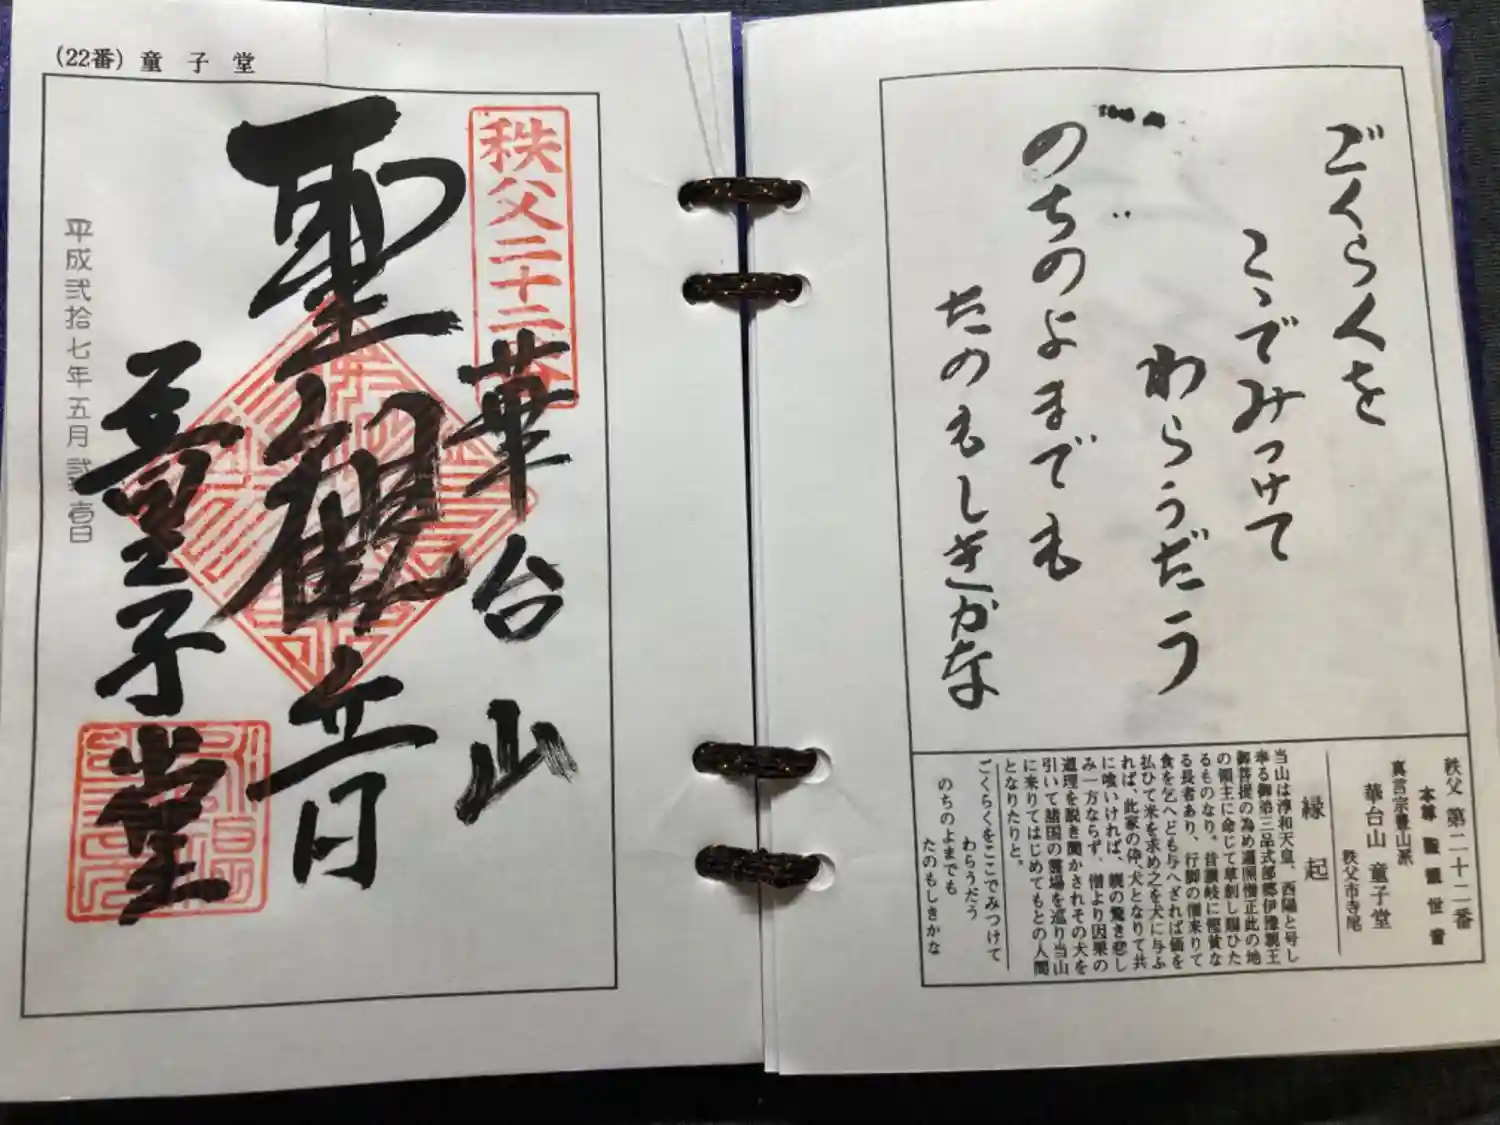 (22番) 童子堂
秩父二十二番
華台山
聖観音
童子堂
平成弐拾七年五月弐壱日
ごくらくを
こゝでみつけて
わらうだう
のちのよまでも
たのもしきかな
秩父 第二十二番
本尊 聖観世音
真言宗豊山派
華台山 童子堂
秩父市寺尾
縁起
当山は淳和天皇、西陽と号し
奉る御第三品式部郷伊豫親王
御菩提の為め遍照僧正此の地
の領主に命じて草創し賜ひた
るものなり。昔讃岐に慳貪な
る長者あり、行脚の僧来りて
食を乞へども与へざれば価を
払ひて米を求め之を犬に与ふ
れば、此家の伜、犬となりて共
に喰いければ、親の驚き悲し
み一方ならず、僧より因果の
道理を説き聞かされその犬を
引いて諸国の霊場を巡り当山
に来りてはじめてもとの人間
となりたりと。
ごくらくをここでみつけて
わらうだう
のちのよまでも
たのもしきかな